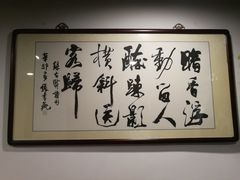 暗香浮
動留人
醉疎影
横斜送
客歸